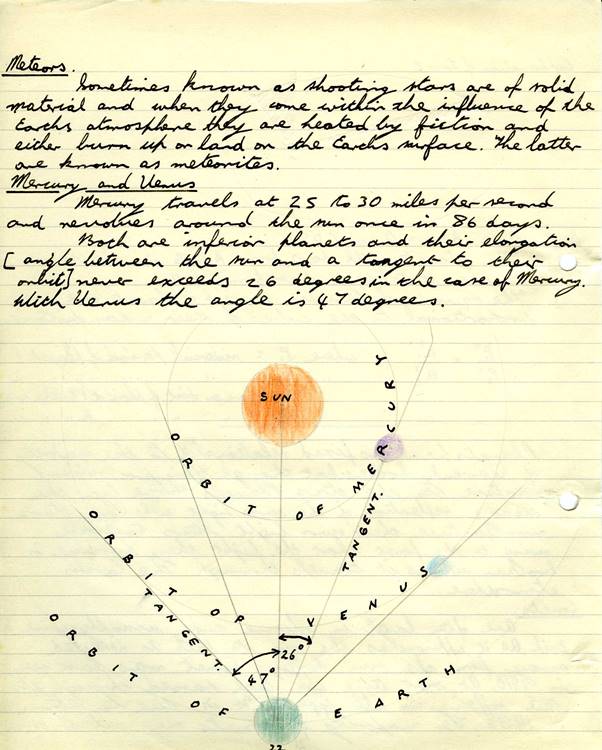 Meteors.
Sometimes known as shooting stars are of solid
material and when they come within the influence of the
Earths atmosphere they are heated by fiction and
either burn up or land on the Earths surface. The latter
are known as meteorites.
Mercury and Venus
Mercury travels at 25 to 30 miles per second
and revolves around the sun once in 86 days.
Both are inferior planets and their elongation
[angle between the sun and a tangent to their
orbit] never exceeds 26 degrees in the case of Mercury.
With Venus the angle is 47 degrees.
SUN
ORBIT OF MERCURY
TANGENT.
ORBIT OF VENUS
TANGENT.
26°
47°
ORBIT OF EARTH